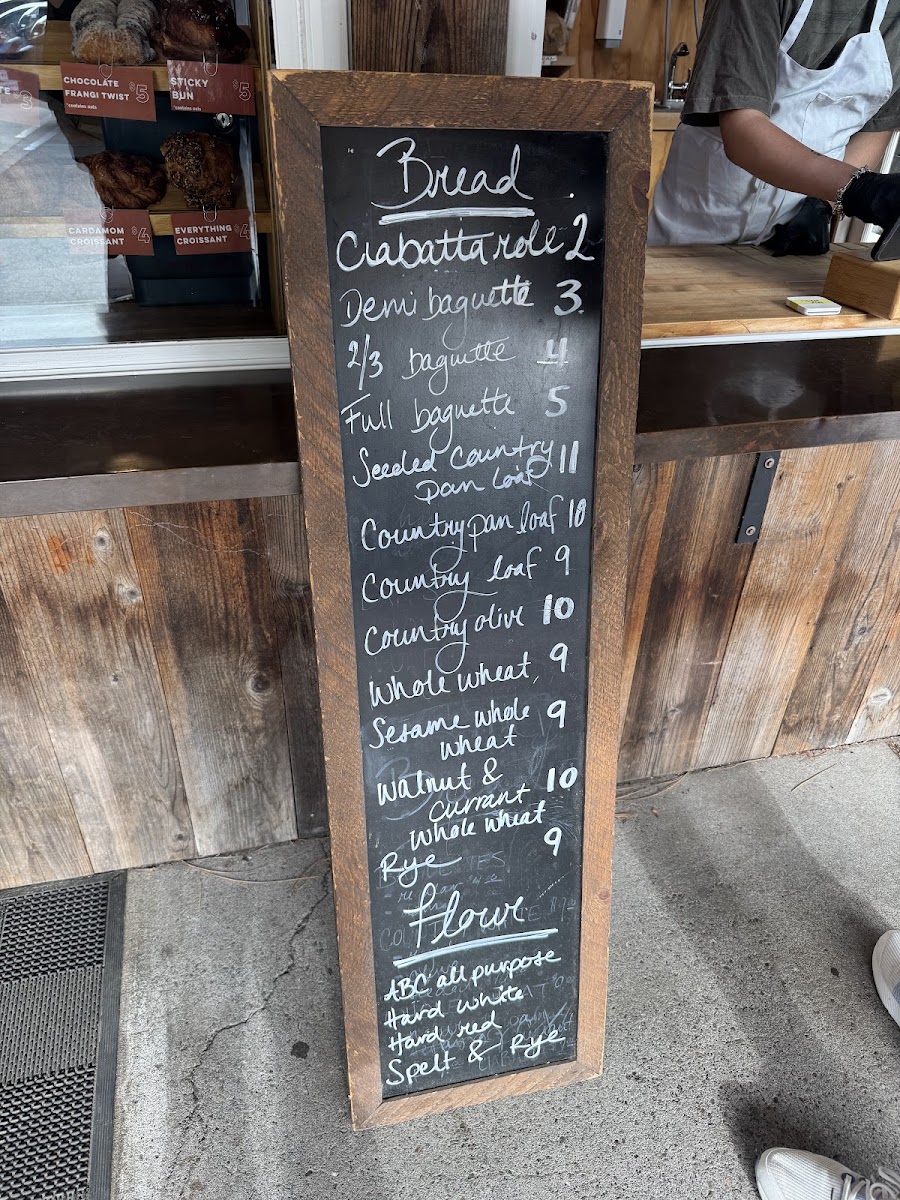 CHOCOLATE
FRANGI TWIST $5
*contains nuts
STICKY
BUN $5
*contains nuts
CARDAMOM
CROISSANT $4
EVERYTHING
CROISSANT $4
Bread
Ciabatta role 2
Demi baguette 3
2/3 baguette 4
Full baguette 5
Seeded Country 11
Pan loaf
Country pan loaf 10
Country loaf 9
Country olive 10
Whole wheat 9
Sesame whole 9
wheat
Walnut & 10
Currant
Whole wheat
Rye 9
Flour
ABC all purpose
Hard white
Hard red
Spelt & Rye